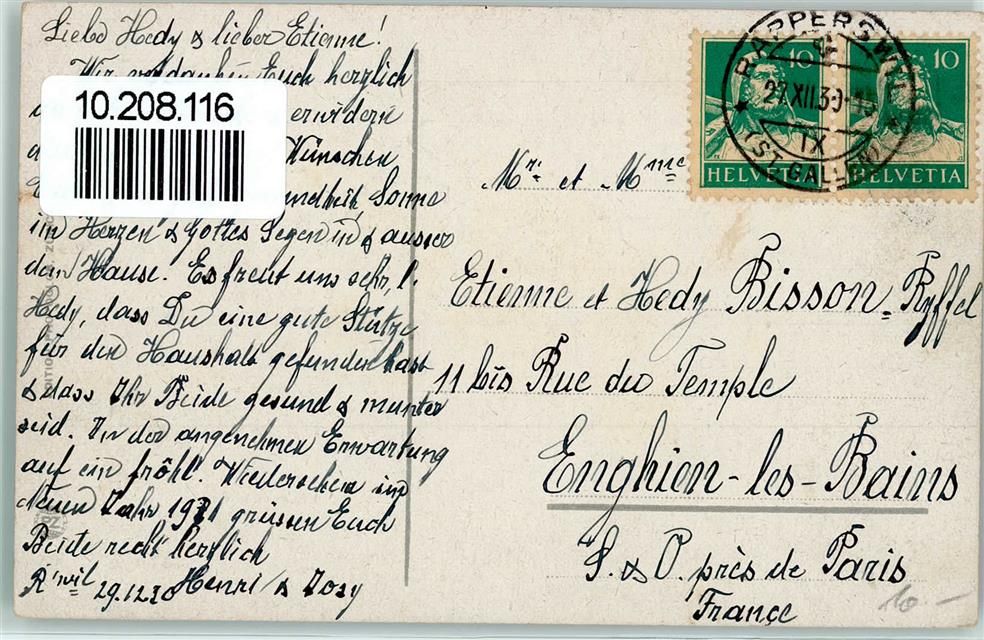 Liebe Hedy & lieber Etienne!
Wir verdanken Euch herzlich
erwidern
Wünschen
Sonne
im Herzen & Gottes Segen in & ausser
dem Hause. Es freut uns sehr, l.
Hedy, dass Du eine gute Stütze
für den Haushalt gefunden hast
& dass Ihr Beide gesund & munter
seid. In der angenehmen Erwartung
auf ein fröhl. Wiedersehen im
Neuen Jahr 1931 grüssen Euch
Beide recht herzlich
R'wil 29.12.30 Henri & Josy
10.208.116
RAPPERSWIL
27.XII.30
IX
(ST. GALLEN)
10
10
HELVETIA
HELVETIA
Mr. et Mme
Etienne et Hedy Bisson-Ryffel
11 bis Rue du Temple
Enghien-les-Bains
S. & O. près de Paris
France
10.-